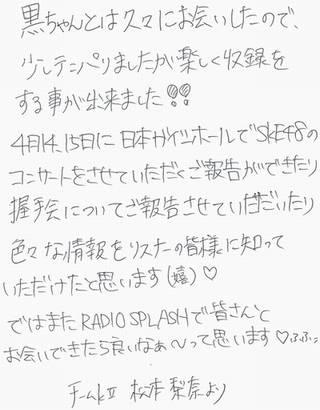 黒ちゃんとは久々にお会いしたので、
少しテンパりましたが楽しく収録を
する事が出来ました!!
4月14、15日に日本ガイシホールでSKE48の
コンサートをさせていただくご報告ができたり
握手会についてご報告させていただいたり
色々な情報をリスナーの皆様に知って
いただけたと思います(嬉)♡
ではまたRADIO SPLASHで皆さんと
お会いできたら良いなぁ〜って思います♡ふふ。
チームKⅡ 松本梨奈より